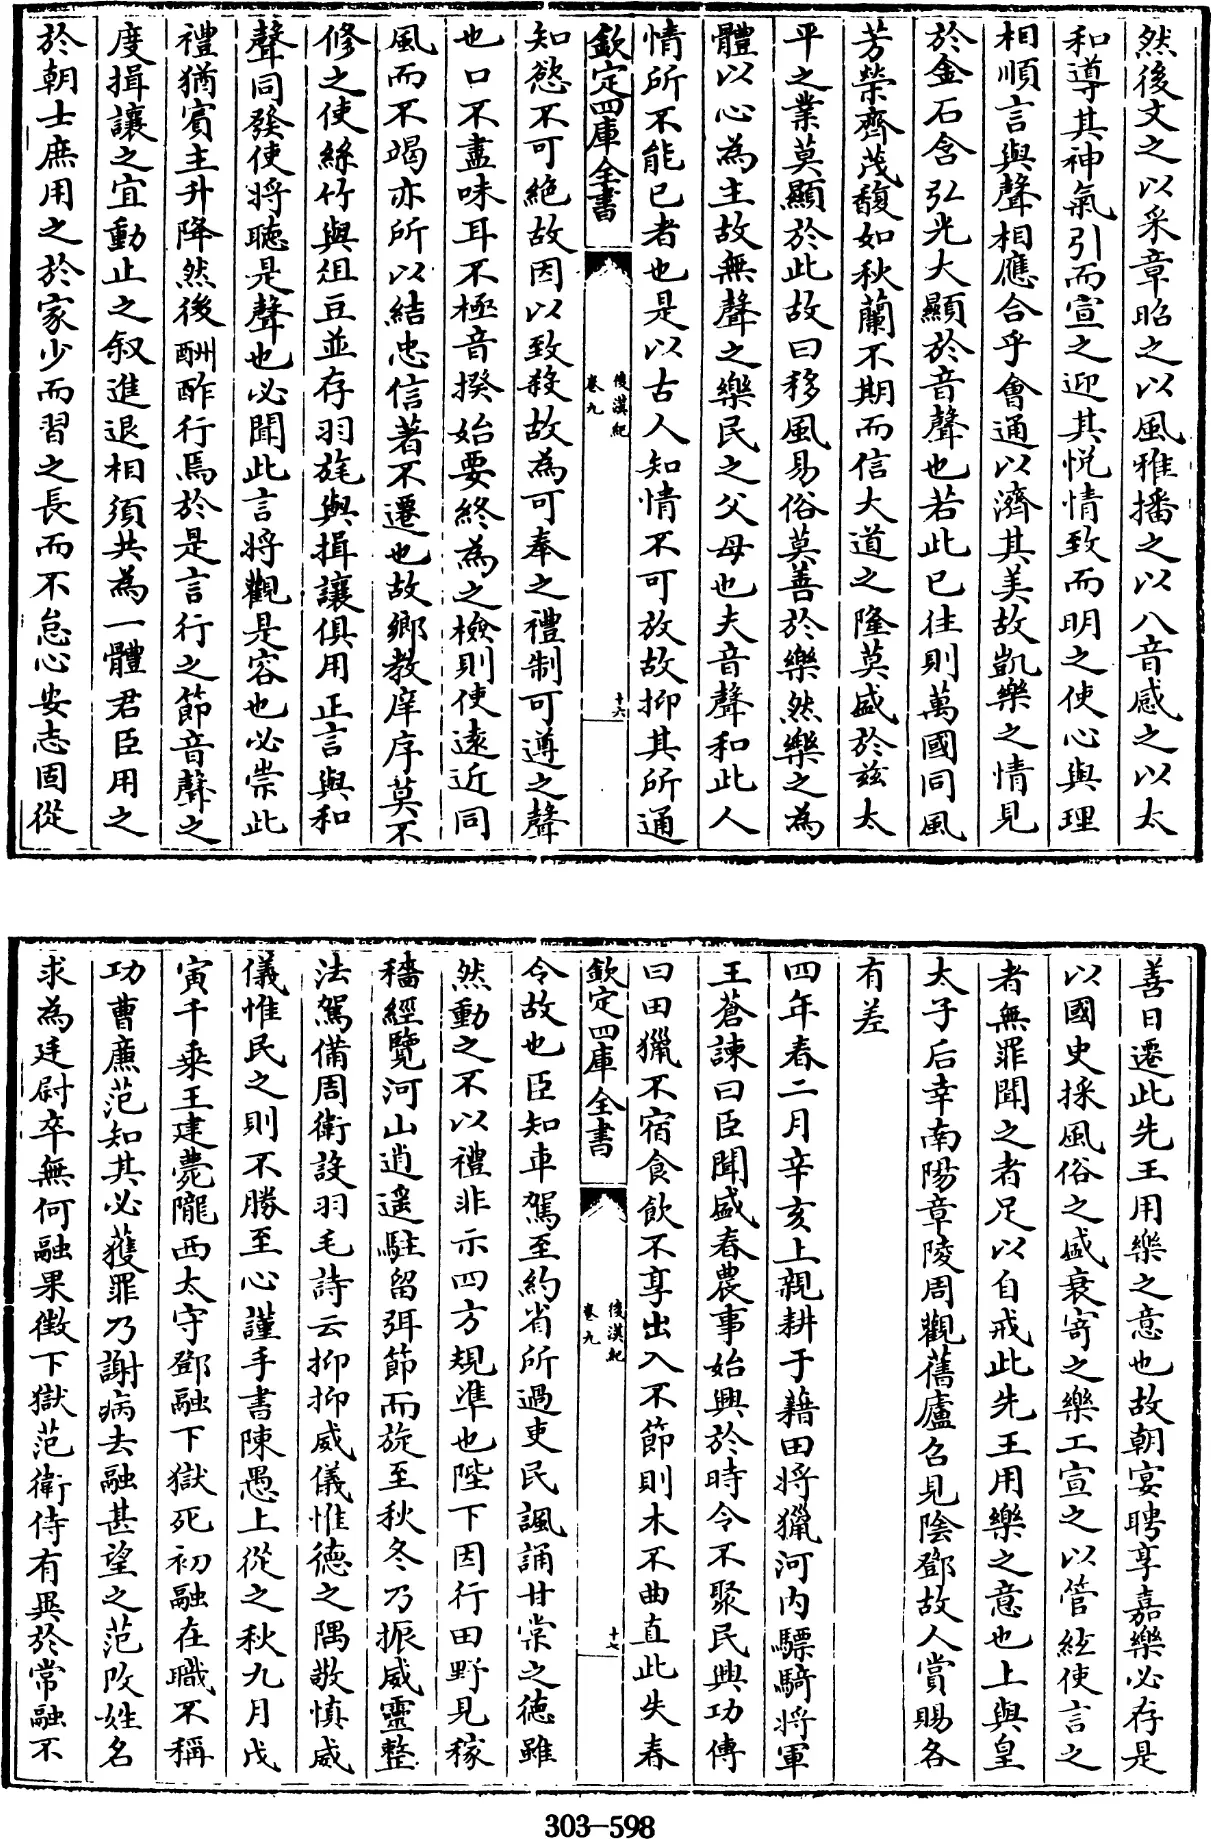 然後文之以采章昭之以風雅播之以八音感之以太
和導其神氣引而宣之迎其悅情致而明之使心與理
相順言與聲相應合乎會通以濟其美故凱樂之情見
於金石含弘光大顯於音聲也若此已往則萬國同風
芳榮齊茂馥如秋蘭不期而信大道之隆莫盛於兹太
平之業莫顯於此故曰移風易俗莫善於樂然樂之為
體以心為主故無聲之樂民之父母也夫音聲和此人
情所不能已者也是以古人知情不可放故抑其所通
欽定四庫全書
後漢紀
卷九
十六
知慾不可絶故因以致殺故為可奉之禮制可遵之聲
也口不盡味耳不極音揆始要終為之檢則使逺近同
風而不竭亦所以結忠信著不遷也故鄉教庠序莫不
修之使絲竹與俎豆並存羽旄與揖讓俱用正言與和
聲同發使將聽是聲也必聞此言將觀是容也必崇此
禮猶賓主升降然後酬酢行焉於是言行之節音聲之
度揖讓之宜動止之叙進退相須共為一體君臣用之
於朝士庶用之於家少而習之長而不怠心安志固從
善日遷此先王用樂之意也故朝宴聘享嘉樂必存是
以國史採風俗之盛衰寄之樂工宣之以管絃使言之
者無罪聞之者足以自戒此先王用樂之意也上與皇
太子后幸南陽章陵周觀舊廬召見陰鄧故人賞賜各
有差
四年春二月辛亥上親耕于藉田將獵河内驃騎將軍
王蒼諫曰臣聞盛春農事始興於時令不聚民興功傳
曰田獵不宿食飲不享出入不節則木不曲直此失春
欽定四庫全書
後漢紀
卷九
十七
令故也臣知車駕至約省所過吏民諷誦甘棠之德雖
然動之不以禮非示四方規凖也陛下因行田野見稼
穡經覽河山逍遥駐留弭節而旋至秋冬乃振威靈整
法駕備周衛設羽毛詩云抑抑威儀惟德之隅敬慎威
儀惟民之則不勝至心謹手書陳愚上從之秋九月戊
寅千乗王建薨隴西太守鄧融下獄死初融在職不稱
功曹廉范知其必獲罪乃謝病去融甚望之范改姓名
求為廷尉卒無何融果徵下獄范衛侍有異於常融不
303-598